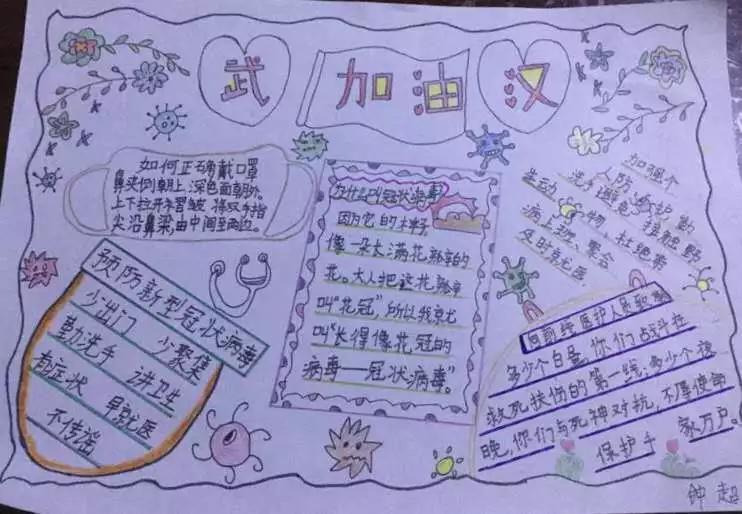 武 加油 汉
如何正确戴口罩
鼻夹侧朝上,深色面朝外。
上下拉开褶皱,将双手指
尖沿鼻梁,由中间至两边。
为什么叫冠状病毒
因为它的样子
像一朵长满花瓣的
花。大人把这花瓣
叫“花冠”所以我就
叫“长得像花冠的
病毒——冠状病毒”。
加强个
人防护
洗手避免 接触野
生动物、杜绝带
病上班、聚会
及时就医
预防新型冠状病毒
少出门 少聚集
勤洗手 讲卫生
有症状 早就医
不传谣
医护人员
多少个白昼,你们战斗在
救死扶伤的第一线;多少个夜
晚,你们与死神对抗,不辱使命
保护千 家万户。
钟 超